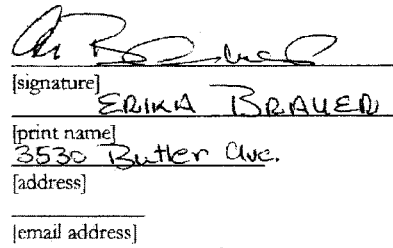 [signature]
ERIKA BRAUER
[print name]
3530 Butler Ave.
[address]
[email address]